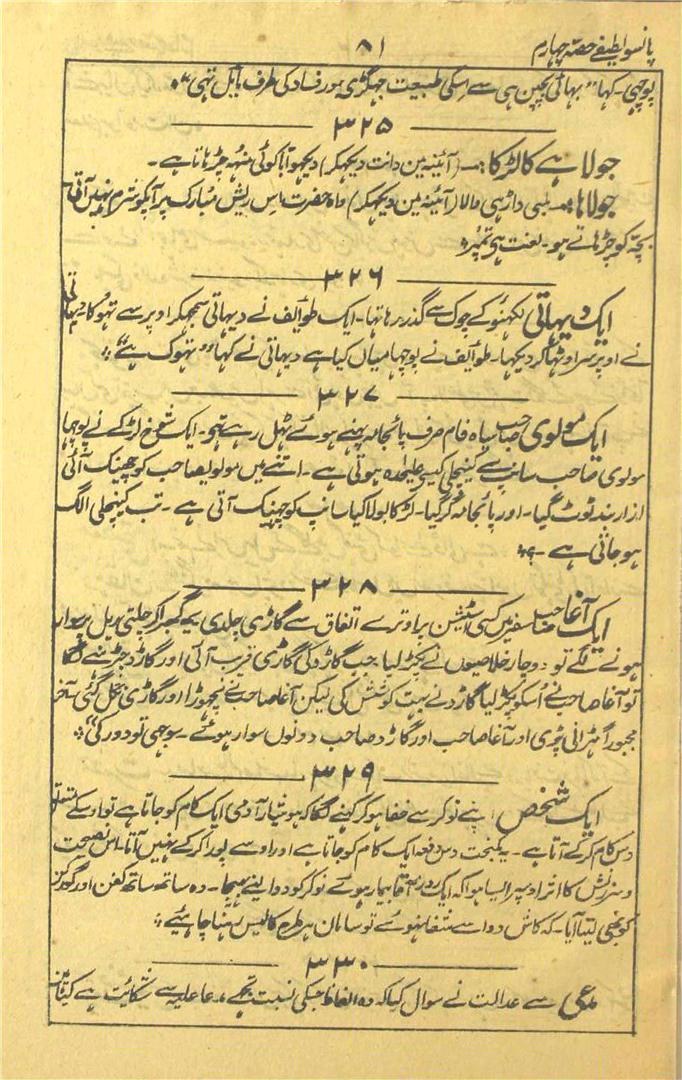 پانسو لطیفے حصہ چہارم
۸۱
پوچھی۔ کہا "بہائی بچپن ہی سے اسکی طبیعت جہگڑی اور فساد کی طرف مایل تہی"
۳۲۵
جولاہے کا لڑکا:۔ (آئینہ مین دانت دیکہکر) دیکھو ابّا کوئی منہہ چڑہاتا ہے۔
جولاہا:۔ لمبی داڑہی والا (آئینہ مین دیکہکر) واہ حضرت اس ریش مبارک پر آپکو شرم نہین آتی
بچّہ کو چڑہاتے ہو۔ لعنت ہی تمپر
۳۲۶
ایک دیہاتی لکہنؤ کے چوک سے گذر رہا تہا۔ ایک طوایف نے دیہاتی سمجہکر اوپر سے تہوکا دیہاتی
نے اوپر سر اوٹھا کر دیکہا۔ طوایف نے پوچہا میان کیا ہے دیہاتی نے کہا "تہوک ہے"
۳۲۷
ایک مولوی صاحب سیاہ فام صرف پائجامہ پہنے ہوئے ٹہل رہے تہی۔ ایک شوخ لڑکے نے پوچہا
مولوی صاحب سانپ سے کینچلی کیسے علیحدہ ہوتی ہے۔ اتنے میں مولویصاحب کو چھینک آئی
ازاربند ٹوٹ گیا۔ اور پائجامہ گر گیا۔ لڑکا بولا کیا سانپ کو چہینک آتی ہے۔ تب کینچلی الگ
ہو جاتی ہے۔
۳۲۸
ایک آغا صاحب سفر میں کسی اسٹیشن پر اوترے اتفاق سے گاڑی چلدی یہ گہبرا کر چلتی ریل پر سوار
ہونے لگے تو دو چار خلاصیوں نے پکڑ لیا جب گارڈ کی گاڑی قریب آئی اور گارڈ چڑہنے لگا
تو آغا صاحب نے اُسکو پکڑ لیا گارڈ نے بہت کوشش کی لیکن آغا صاحب نے نچہوڑا اور گاڑی نکل گئی آخر
مجبوراً ٹہرانی پڑی اور آغا صاحب اور گارڈ صاحب دونوں سوار ہو گئے۔ سوجہی تو دور کی"
۳۲۹
ایک شخص اپنے نوکر سے خفا ہو کر کہنے لگا کہ ہوشیار آدمی ایک کام کو جاتا ہے تو اوسکے متعلق
دس کام کر کے آتا ہے۔ یکمبخت دس دفعہ ایک کام کو جاتا ہے اور اوسے پورا کر کے نہیں آتا۔ اس نصیحت
و سرزنش کا اثر اوسپر ایسا ہوا کہ ایک روز آقا بیمار ہوئے نوکر کو دوا لینے بہیجا۔ وہ ساتھ ساتھ کفن اور گورکن
کو بہی لیتا آیا۔ کہ کاش دوا سے شفا نہوئے تو سامان ہر طرح کا لیس رہنا چاہئیے
۳۳۰
مدعی سے عدالت نے سوال کیا کہ وہ الفاظ جنکی نسبت تجہے مدعا علیہ سے شکائت ہے کیا